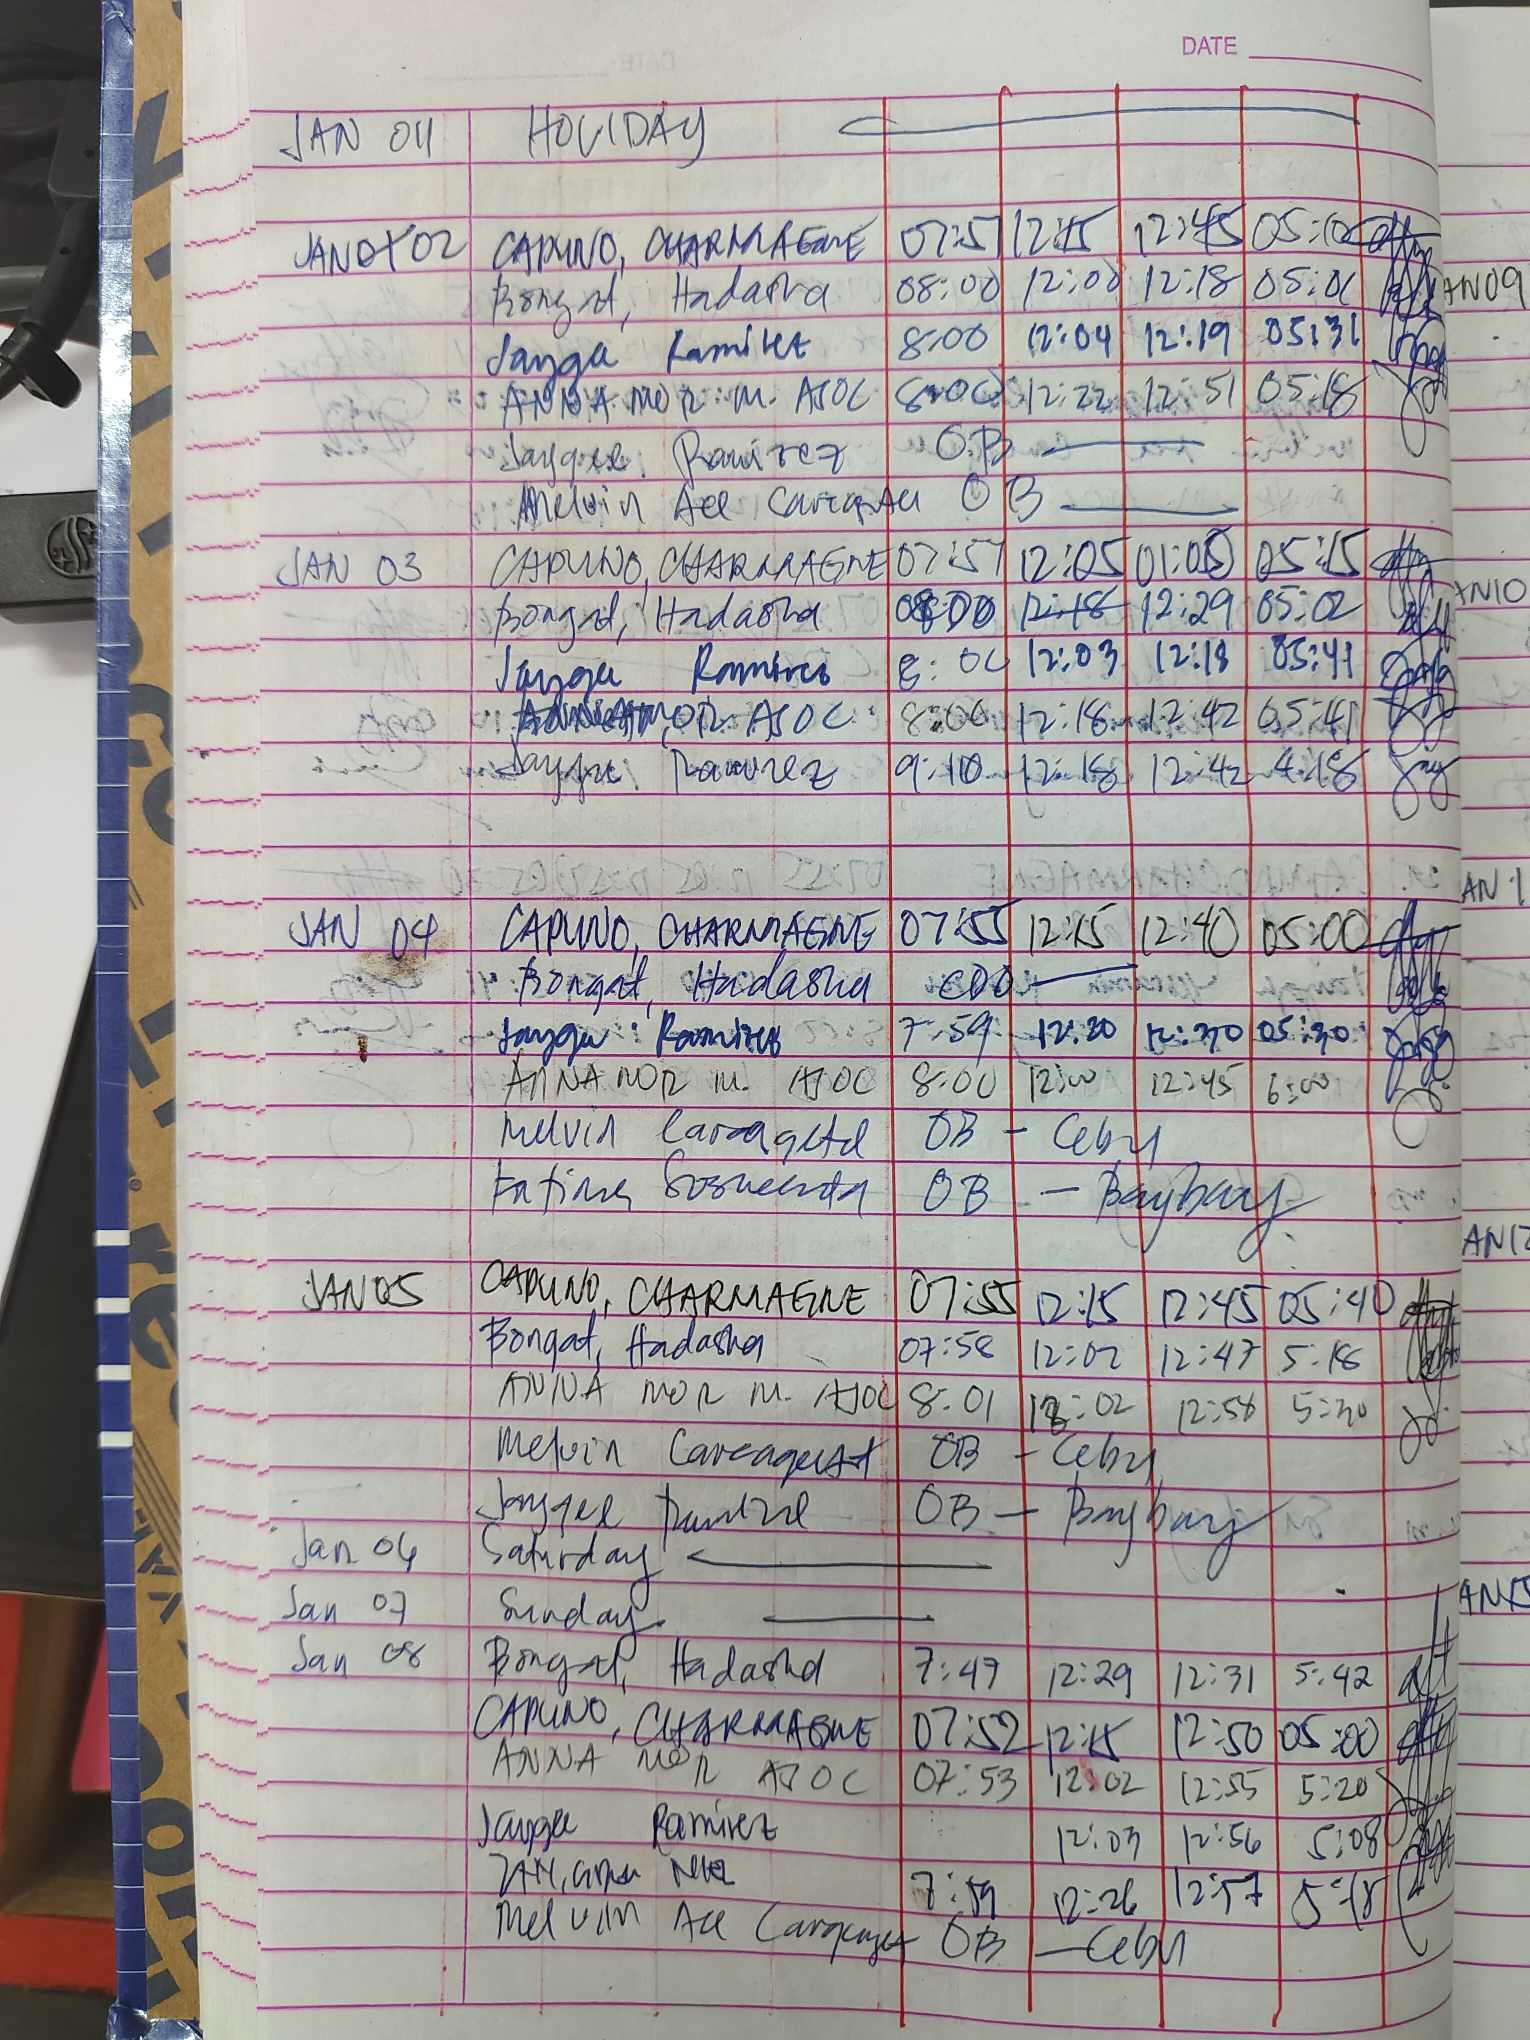 DATE
JAN 01 HOLIDAY
JAN 02 CAPUNO, CHARMAGNE 07:51 12:15 12:45 05:10
Bongat, Hadasha 08:00 12:00 12:18 05:01
AN09
Jaygee Ramirez 8:00 12:04 12:19 05:31
ANNA MOR M. AJOC 8:00 12:22 12:51 05:18
Jaygee Ramirez O.B
Melvin Ace OB
JAN 03 CAPUNO, CHARMAGNE 07:57 12:05 01:05 05:15
AN10
Bongat, Hadasha 08:00 12:18 12:29 05:02
Jaygee Ramirez 8:00 12:03 12:18 05:41
ANNA MOR AJOC 8:00 12:18 12:42 05:41
Jaygee Ramirez 9:10 12:18 12:42 4:18
AN 1
JAN 04 CAPUNO, CHARMAGNE 07:55 12:15 12:40 05:00
Bongat, Hadasha CDO
Jaygee Ramirez 7:59 12:20 12:30 05:30
ANNA MOR M. AJOC 8:00 12:00 12:45 6:00
Melvin OB - Cebu
Fatima OB - Baybay
AN12
JAN 05 CAPUNO, CHARMAGNE 07:55 12:15 12:45 05:40
Bongat, Hadasha 07:58 12:02 12:47 5:18
ANNA MOR M. AJOC 8:01 12:02 12:58 5:30
Melvin OB - Cebu
Jaygee OB - Baybay
Jan 06 Saturday
AN15
Jan 07 Sunday
Jan 08 Bongat, Hadasha 7:47 12:29 12:31 5:42
CAPUNO, CHARMAGNE 07:52 12:15 12:50 05:00
ANNA MOR AJOC 07:53 12:02 12:55 5:20
Jaygee Ramirez 12:03 12:56 5:08
7:59 12:26 12:57 5:18
Melvin Ace OB - Cebu